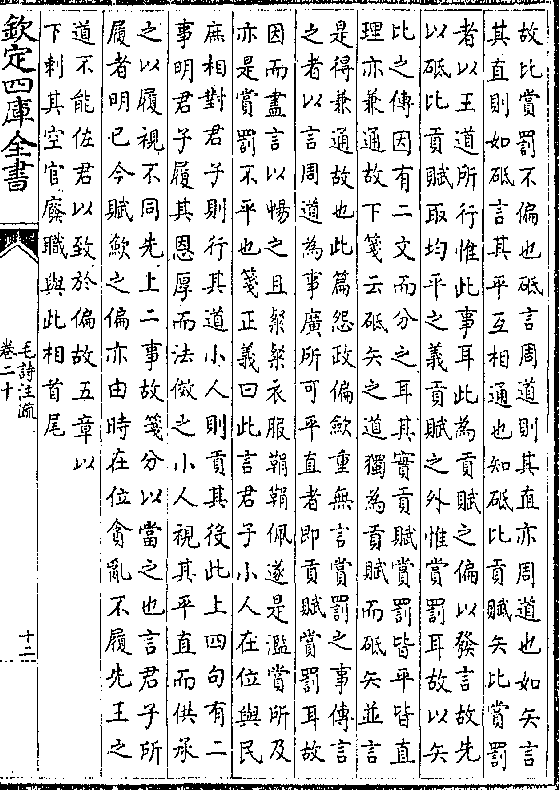 故比賞罰不偏也砥言周道則其直亦周道也如矢言
其直則如砥言其平互相通也知砥比貢賦矢比賞罰
者以王道所行惟此事耳此為貢賦之偏以發言故先
以砥比貢賦取均平之義貢賦之外惟賞罰耳故以矢
比之傳因有二文而分之耳其實貢賦賞罰皆平皆直
理亦兼通故下箋云砥矢之道獨為貢賦而砥矢並言
是得兼通故也此篇怨政偏歛重無言賞罰之事傳言
之者以言周道為事廣所可平直者即貢賦賞罰耳故
因而盡言以暢之且粲粲衣服鞙鞙佩遂是濫賞所及
亦是賞罰不平也箋正義曰此言君子小人在位與民
庶相對君子則行其道小人則貢其後此上四句有二
事明君子履其恩厚而法傚之小人視其平直而供承
之以履視不同先上二事故箋分以當之也言君子所
履者明已今賦歛之偏亦由時在位貪亂不履先王之
道不能佐君以致於偏故五章以
下刺其空官廢職與此相首尾
欽定四庫全書
毛詩注疏
卷二十
十二